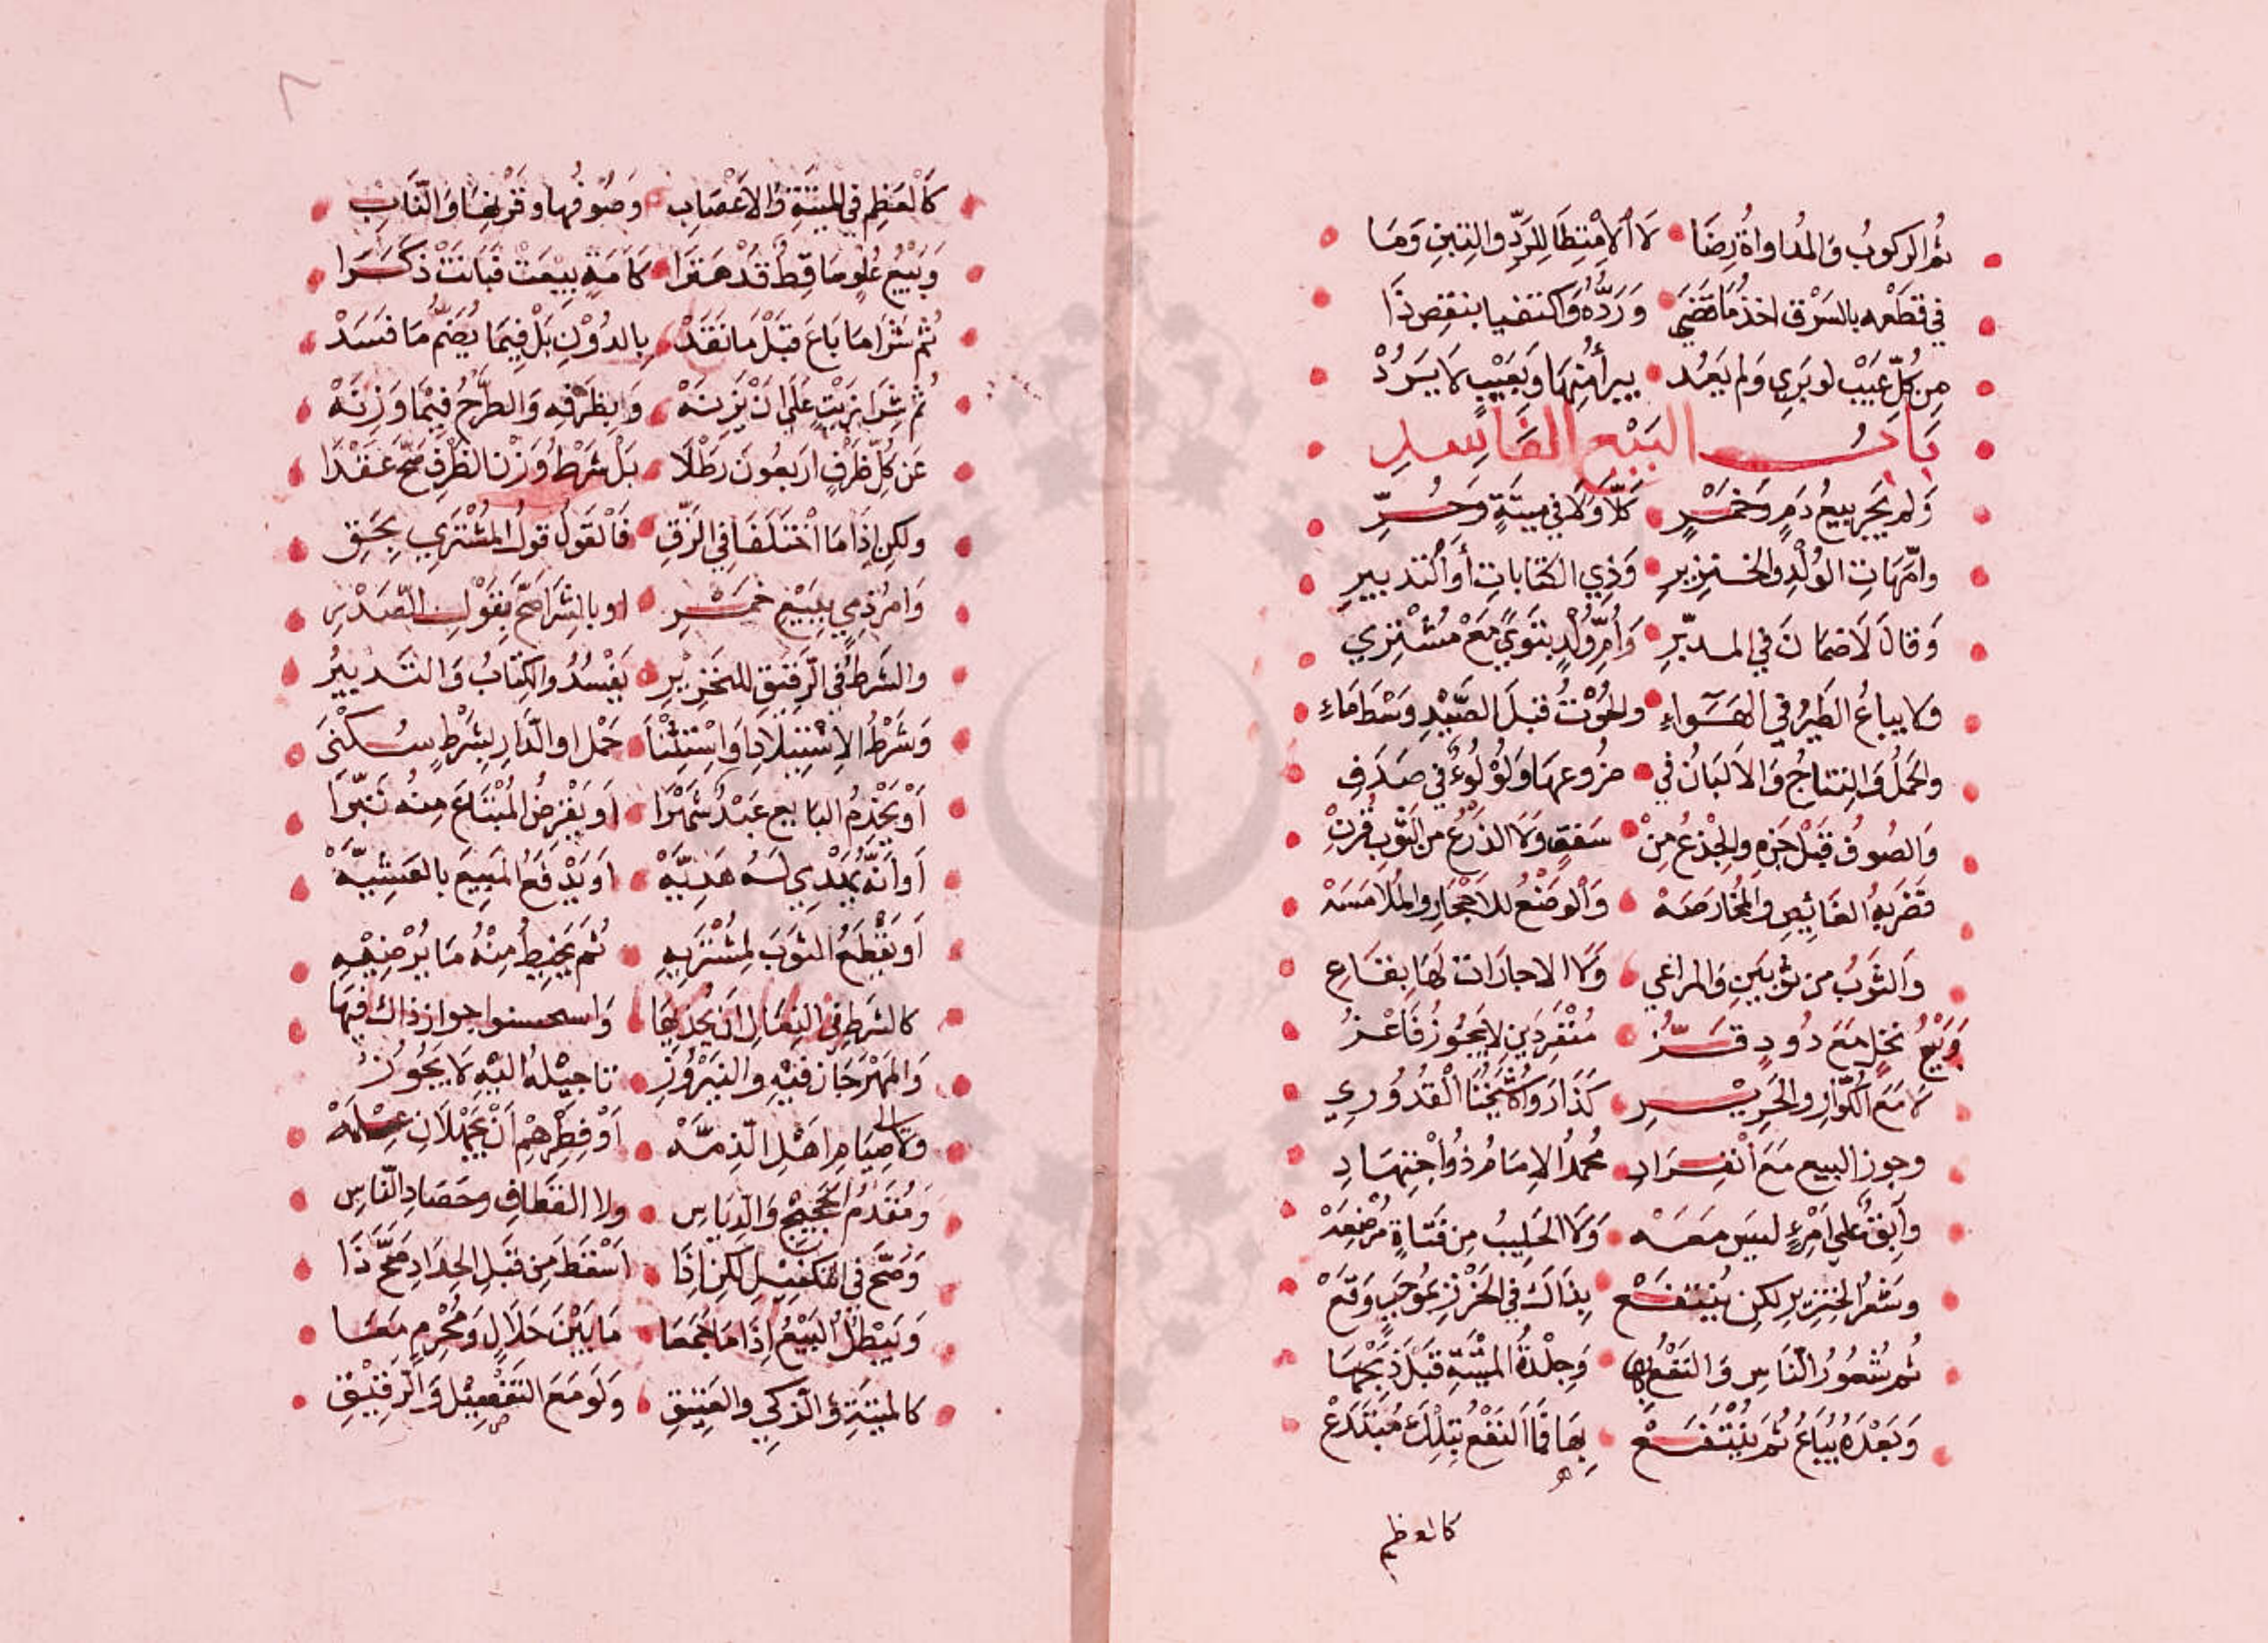 ثُمَّ الركوبُ وَالمُداواةُ رِضَا لَا الِامْتِطَا لِلرَدِّ والتِبْنِ وَمَا
في قطعه بالسَرْق اخذُ مَا قضَى وَرَدُّهُ وَاكتفيا بنقِص ذَا
مِن كُلِّ عَيبْ لو بَرِي وَلم يَعُد يبرأْ مُنِهَا وَبعَيْبٍ لا يَرُدْ
بَابُ البَيْع الفَاسِدِ
وَلم يَجُز بيعُ دَمٍ وَخمْرٍ كَلَّا وَلَا في ميتَةٍ وَحُرِّ
وامّهَاتِ الوُلْدِ والخنزِيرِ وَذِي الكتاباتِ أو التدبيرِ
وَقالَا لَا ضمَانَ في المدبّرِ وَأُمِّ وُلْدٍ بتَوىً مَعْ مُشْتري
ولا يباعُ الطَيرُ في الهَوَاءِ والحُوْتُ قبلَ الصَّيْدِ وَسْطَ مَاءِ
والحَملُ وَالنِتاجُ وَالاَلبَانُ في ضروعهَا وَلُؤلُوءٌ في صَدَفِ
وَالصُوفُ قبْلَ جَزهِ والجِذعُ مِنْ سَقفٍ وَلَا الذَرْعُ من الثَوبِ قُرِنْ
فضَربهُ الغَائِصِ والمُعارضَهْ وَالوضْعُ للاَحْجَارِ والمُلَامَسَهْ
وَالثَوبُ من ثوْبَينِ وَالمراعي وَلَا الاجارَات لهَا بِقَاعِ
وَبَيْعُ نحلٍ مَعَ دُودِ قَزُّ مُنفَردَينِ لا يجُوزُ فَاعْزُ
لا مَعَ الكُوَّارِ والحَريْرِ كَذَا رَوَاهُ شيْخُنَا القُدُورِي
وجوز البيع مَعَ انْفِرَادِ مُحمدُ الاِمَامُ ذُوا جْتِهَادِ
وآبقٌ علي امْرِءٍ ليَس مَعَه وَلَا الحَلِيبُ مِن فَتَاةٍ مُرْضِعَهْ
وشعْرُ الخِنزيرِ لكِن يُنتفَعْ بِذَاكَ في الخَرْزِ بمُوجَبٍ وَقَعْ
ثُم شُعُورُ النّاسِ وَالنَفْعُ بها وَجِلْدةُ الميْتَةِ قبْلَ ذبحِهَا
وَبَعْدَهُ يُبَاعُ ثُم يُنْتفَعْ بِهَا فمَا النَفْعُ بِتلْكَ مُبْتَدَعْ
كالعظم
كَالعَظمِ في الميتَةِ وَالاَعْصَابِ وَصُوفُها وقَرْنِهَا وَالنَّابِ
وَبَيْعُ عُلْوٍ سَاقِطٌ قدْ هَتَرَا كَاَمَةٍ بيْعَتْ فبَانَتْ ذكَرَا
ثُم شَرَا مَا بَاعَ قبْلَ مَا نَقَدْ بِالدُوْنِ بَلْ فِيمَا يُضَمُّ مَا فسَدْ
ثُم شِرَا زيْتٍ عَلَى انْ يَزِنَهْ وَبِظَرْفهِ وَالطَرْحُ فيْمَا وَزنَهْ
عَن كلِّ ظَرْفٍ اربَعُونَ رَطْلَا بَلْ شَرْطُ وَزْنِ الظَرْفِ صَحَّ عَقْدَا
ولكِن إذَا مَا اخْتَلَفَا في الزّقِ فَالقَولُ قولُ المشْتَرِي بِحَقِ
وَامرُ ذِمّي بِبَيْع خمْرِ او بالشِرَا صَحَّ بِقَولِ الصَدْرِ
والشَرطُ في الرَقيقِ للخنزِيرِ يَفْسُدُ والكِتابُ وَالتَدْبيْرُ
وَشَرْطُ الاِسْتِيْلَادِ اوْ اسْتِثْنا حَمْل او الدَّارِ بِشَرْطِ سُكْنَى
اَوْ يَخْدمُ البايع عَبْدٌ شَهْرَا اَو يَقْرِضُ المُبْتَاعَ مِنه تِبْرَا
اَو اَنّهُ يُهْدِي لَهُ هَديَّهْ اَو يَدْفَعُ المَبِيعَ بالعَشيَّهْ
اَو يقْطَعَ الثوَبَ لِمُشْتَرِيهِ ثُمَ يَخِيطُ مِنْهُ مَا يُرْضِيْهِ
كالشَرطِ في النِعَالِ اَن يحْذيهَا وَاسحسنوا جوازذاك فيهَا
وَالمهْرَجَان فيْهِ والنَيرُوْزِ تاجيْلهُ اليْهِ لَا يجُوزُ
وَلَا صِيَامِ اَهْلِ الذِمّهْ اَوْ فِطْرِهْم اَنْ يجْهَلَانِ عِلْمَهْ
وَمُقدمُ الحَجيْجِ وَالدِيَاسِ ولا القطافِ وحَصَادِ النّاسِ
وَصَحَّ في التكفيْلِ لكِن اِذَا اَسْقطَ مِن قبْلِ الحِدَادِ صَحَّ ذَا
وَيَبْطُلُ البَيْعُ اِذَا مَا جُمعَا مَا بَيْنَ حَلَالٍ وَمُحْرمٍ مَعَا
كالميتةِ وَالذكي والعَتِيقِ وَلَو مَعَ التَفْصِيْلِ وَالرقيْقِ